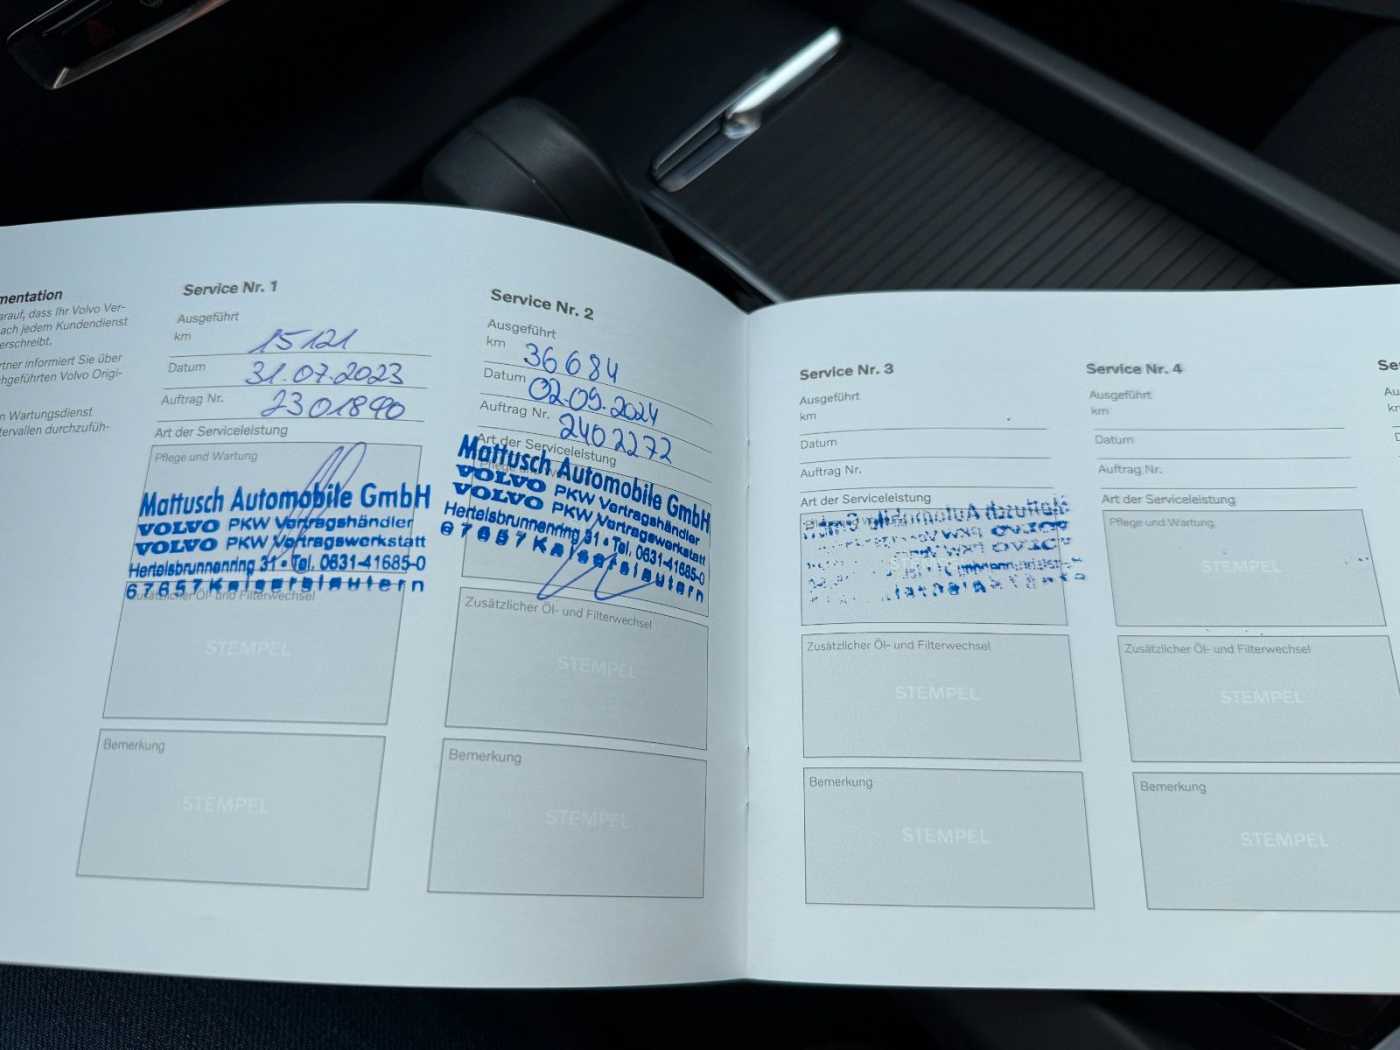 mentation
arauf, dass Ihr Volvo Ver-
ach jedem Kundendienst
erschreibt.
rtner informiert Sie über
hgeführten Volvo Origi-
n Wartungsdienst
tervallen durchzufüh-
Service Nr. 1
Ausgeführt
km 15121
Datum 31.07.2023
Auftrag Nr. 2301890
Art der Serviceleistung
Pflege und Wartung
Mattusch Automobile GmbH
VOLVO PKW Vertragshändler
VOLVO PKW Vertragswerkstatt
Hertelsbrunnenring 31 • Tel. 0631-41685-0
67657 Kaiserslautern
Zusätzlicher Öl- und Filterwechsel
STEMPEL
Bemerkung
STEMPEL
Service Nr. 2
Ausgeführt
km 36684
Datum 02.09.2024
Auftrag Nr. 2402272
Art der Serviceleistung
Mattusch Automobile GmbH
VOLVO PKW Vertragshändler
VOLVO PKW Vertragswerkstatt
Hertelsbrunnenring 31 • Tel. 0631-41685-0
67657 Kaiserslautern
Zusätzlicher Öl- und Filterwechsel
STEMPEL
Bemerkung
STEMPEL
Service Nr. 3
Ausgeführt
km
Datum
Auftrag Nr.
Art der Serviceleistung
Zusätzlicher Öl- und Filterwechsel
STEMPEL
Bemerkung
STEMPEL
Service Nr. 4
Ausgeführt
km
Datum
Auftrag Nr.
Art der Serviceleistung
Pflege und Wartung
STEMPEL
Zusätzlicher Öl- und Filterwechsel
STEMPEL
Bemerkung
STEMPEL